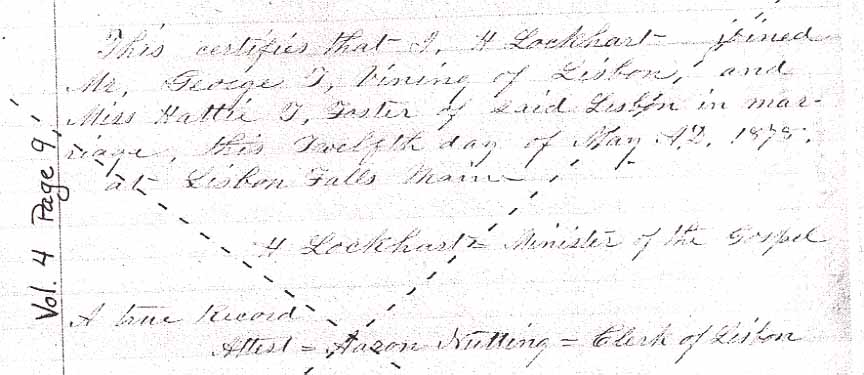 This certifies that I, H Lockhart joined
Mr. George T, Vining of Lisbon, and
Miss Hattie T, Foster of said Lisbon in mar-
riage, this Twelfth day of May A.D. 1878.
at Lisbon Falls Maine
H Lockhart = Minister of the Gospel
A true Record
Attest = Aaron Nutting = Clerk of Lisbon
Vol. 4 Page 9,